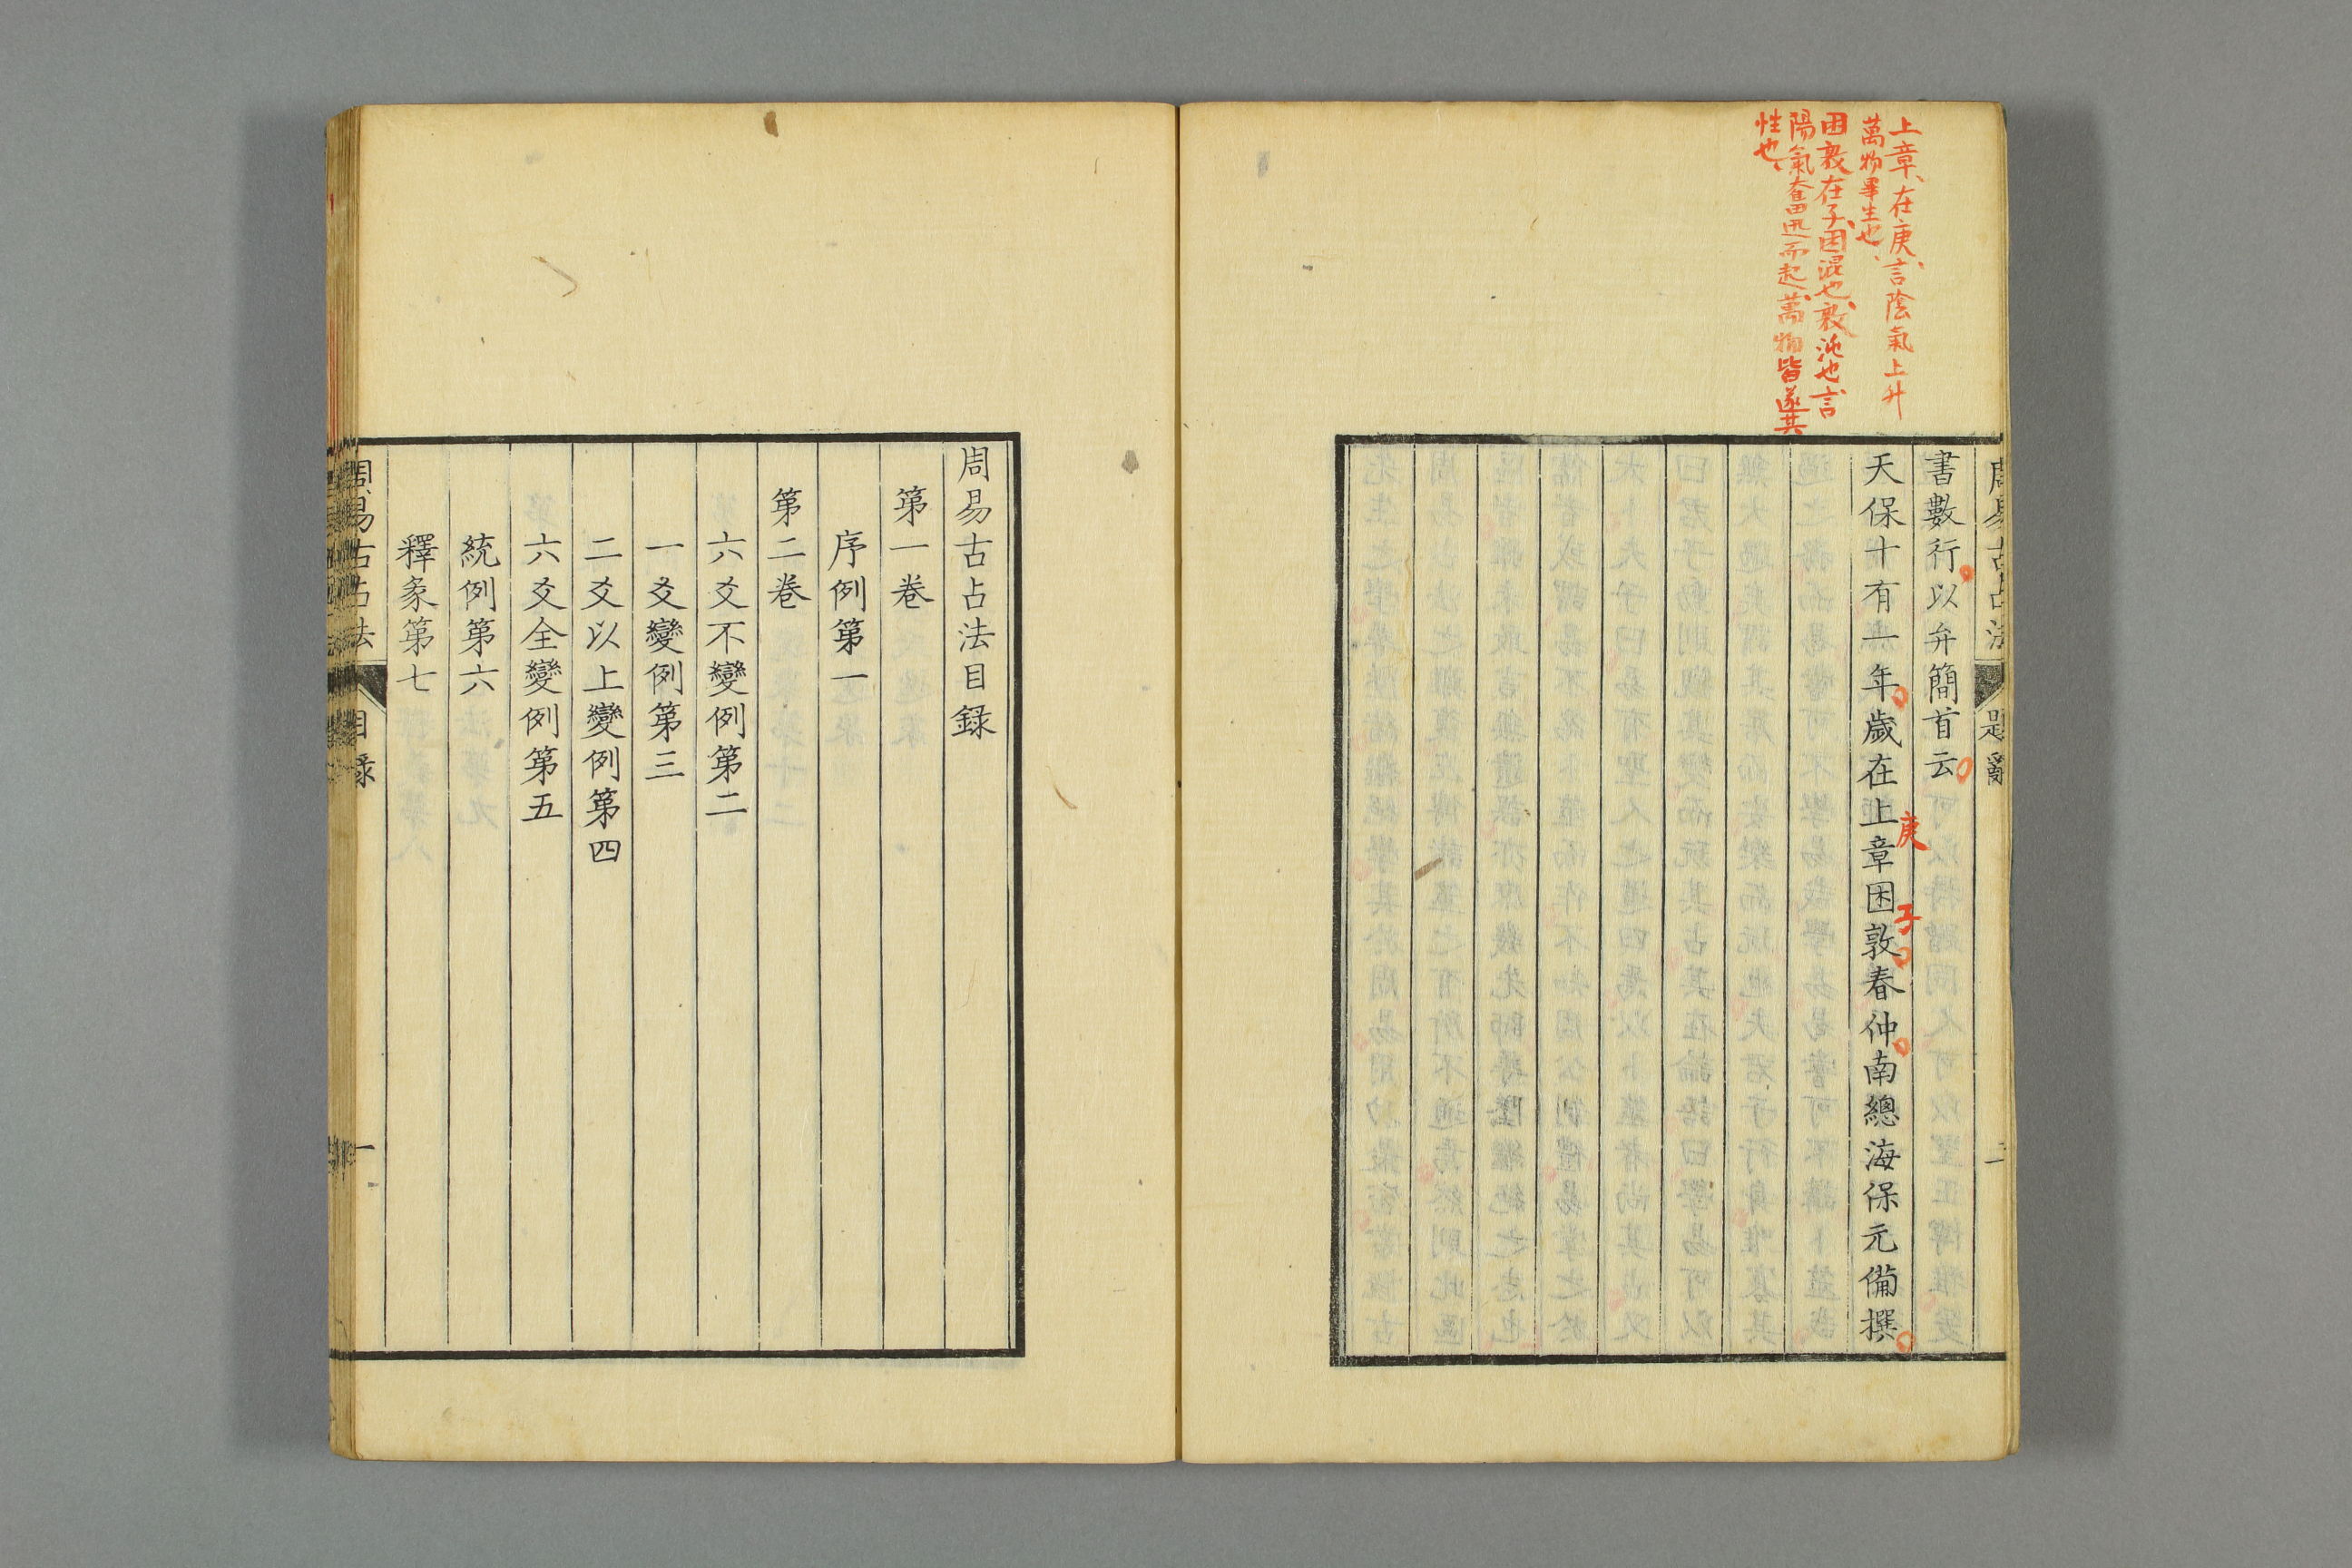 上章、在庚、言陰氣上升
萬物畢生也、
困敦在子、困混也、敦沌也、言
陽氣奮迅而起、萬物皆遂其
性也、
周易古占法 題辭 二
書數行以弁簡首云
天保十有一年歲在上章困敦春仲南總海保元備撰
庚
子
周易古占法目録
第一卷
序例第一
第二卷
六爻不變例第二
一爻變例第三
二爻以上變例第四
六爻全變例第五
統例第六
釋象第七
周易古占法 目錄 一